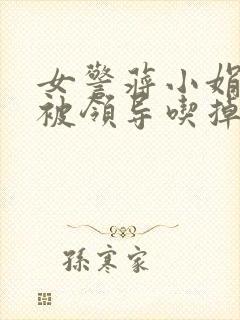 女警蒋小娟
被领导喫掉
孫寒家